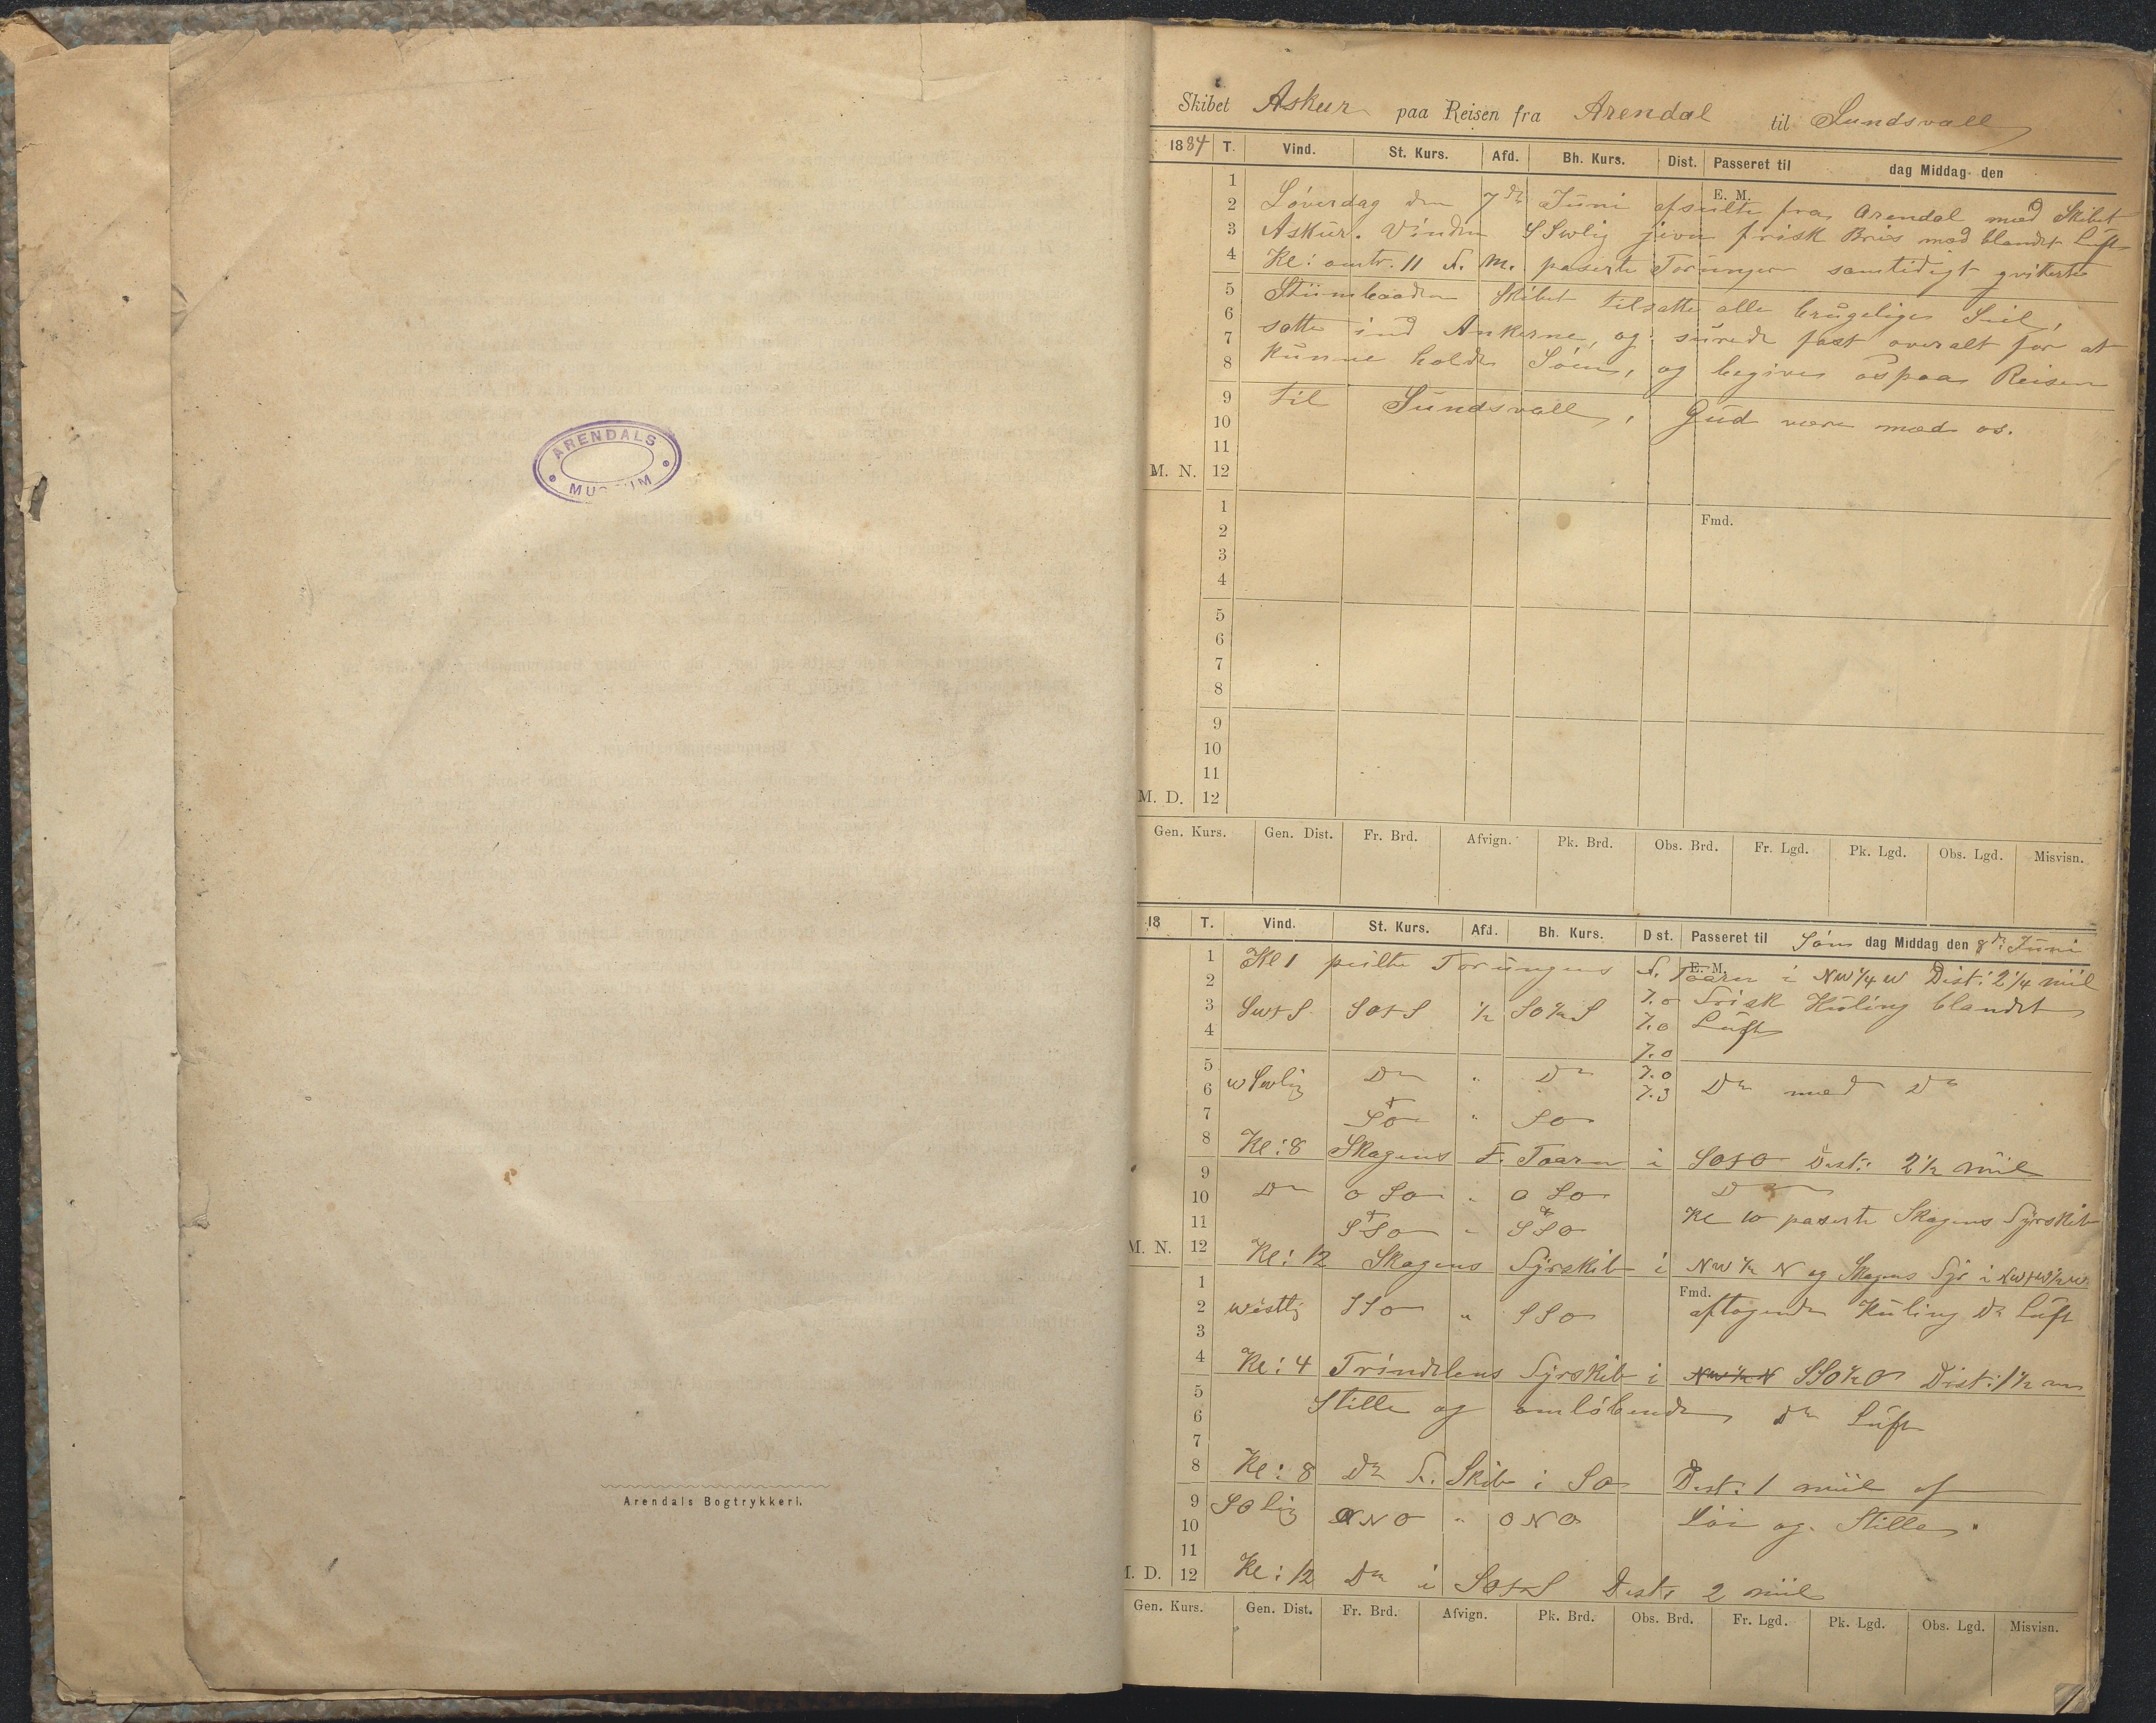 ARENDALS
MUSEUM
Arendals Bogtrykkeri.
Skibet Askur paa Reisen fra Arendal til Sundsvall
1884 T. Vind. St. Kurs. Afd. Bh. Kurs. Dist. Passeret til dag Middag den
E. M.
1
2 Löverdag den 7de Juni afseilte fra Arendal med Skibet
3 Askur. Vinden SSwlig jevn frisk Bris med blandet Luft
4 Kl: omtr. 11 F. M. paserte Torungen samtidigt qviterte
5 Stümbaaden Skibet tilsatte alle brugelige Seil,
6
7 satte ind Ankerne, og surede fast overalt for at
8 kunne holde Söen, og begiver os paa Reisen
9 til Sundsvall, Gud være med os.
10
11
M. N. 12
Fmd.
1
2
3
4
5
6
7
8
9
10
11
M. D. 12
Gen. Kurs. Gen. Dist. Fr. Brd. Afvign. Pk. Brd. Obs. Brd. Fr. Lgd. Pk. Lgd. Obs. Lgd. Misvisn.
18 T. Vind. St. Kurs. Afd. Bh. Kurs. Dist. Passeret til Sön dag Middag den 8de Juni
E. M.
1 Kl 1 peilte Torungens F. Taarn i NW 1/4 W Dist: 2 1/4 miil
2 7.0 Frisk Kuling blandet
3 SwtS SOtS 1/2 SO 1/2 S 7.0 Luft
4 7.0
5 wSwlig Do " Do 7.0
6 7.3 Do med Do
7 SO " SO
8 Kl: 8 Skagens F. Taarn i SOtO Dist: 2 1/2 miil
9 Do O SO " O SO Do
10 Kl 10 paserte Skagens Fyrskib
11 SSO " SSO
M. N. 12 Kl: 12 Skagens Fyrskib i NW 1/2 N og Skagens Fyr i NWtW 1/2 W
Fmd.
1
2 westlig SSO " SSO aftagende Kuling Do Luft
3
4 Kl: 4 Trindelens Fyrskib i NW 1/2 N SSO 1/2 O Dist: 1 1/2 m
5 Stille og omlöbende Do Luft
6
7
8 Kl: 8 Do F. Skib i SO Dist: 1 miil af
9 SOlig ONO " ONO Löi og Stille
10
11
M. D. 12 Kl: 12 Do i SOtS Dist: 2 miil
Gen. Kurs. Gen. Dist. Fr. Brd. Afvign. Pk. Brd. Obs. Brd. Fr. Lgd. Pk. Lgd. Obs. Lgd. Misvisn.